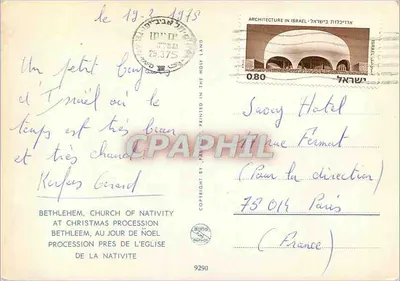 le 19-2-1975
ARCHITECTURE IN ISRAEL · אדריכלות בישראל
0.80
ישראל
25.3.75
Un petit bonjour
d'Israël où le
temps est très beau
et très chaud
Gérard
Savoy Hotel
Rue Fermat
(Pour la direction)
75014 Paris
(France)
CPAPHIL
BETHLEHEM, CHURCH OF NATIVITY
AT CHRISTMAS PROCESSION
BETHLEEM, AU JOUR DE ÑOEL
PROCESSION PRES DE L'EGLISE
DE LA NATIVITE
9290
PRINTED IN THE HOLY LAND
COPYRIGHT BY